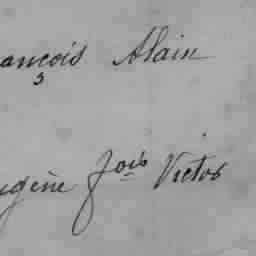 ançois Alain
ugène fois Victor